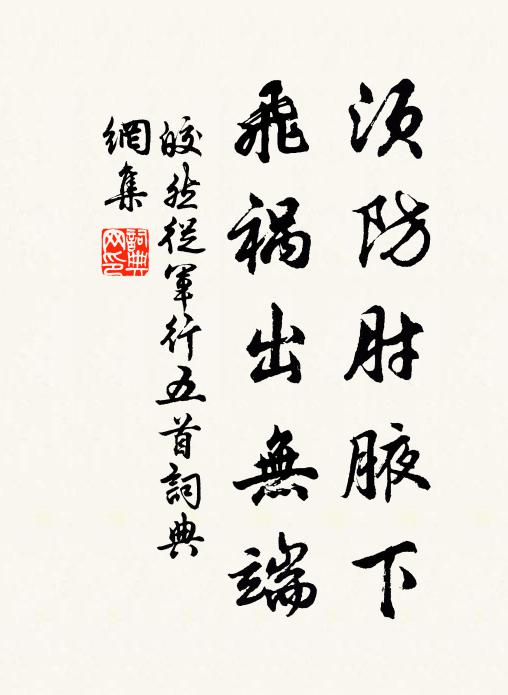 须防肘腋下
飛禍出無端
皎然從軍行五首詞典
網集
詞典
网印